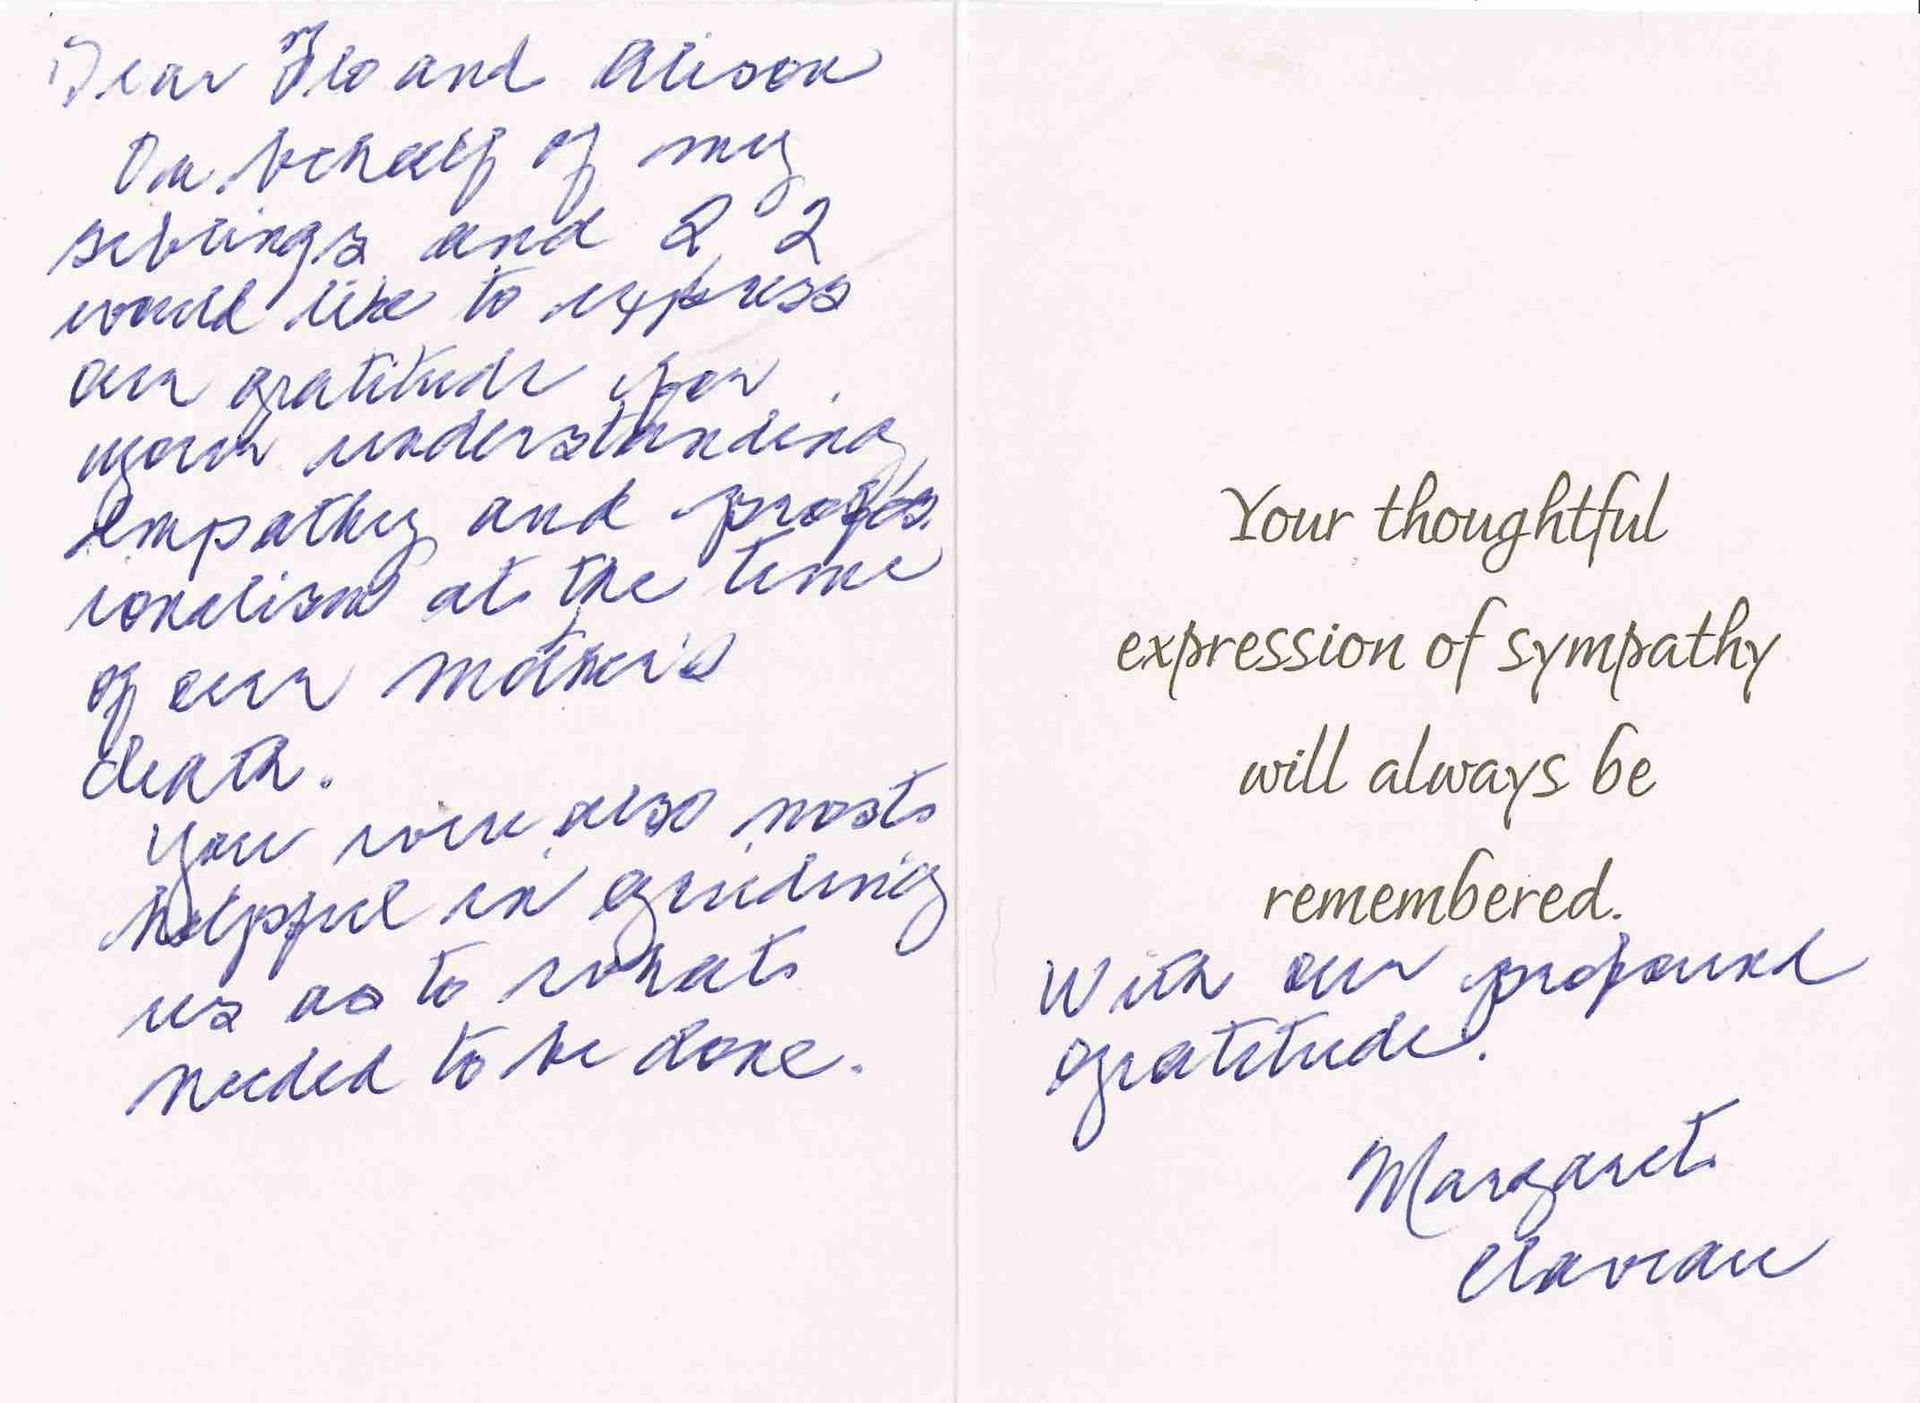 Dear Flo and Alison
On behalf of my
siblings and I, I
would like to express
our gratitude for
your understanding
empathy and profes.
ionalism at the time
of our mother's
death.
You were also most
helpful in guiding
us as to what
needed to be done.
Your thoughtful
expression of sympathy
will always be
remembered.
With our profound
gratitude.
Margaret